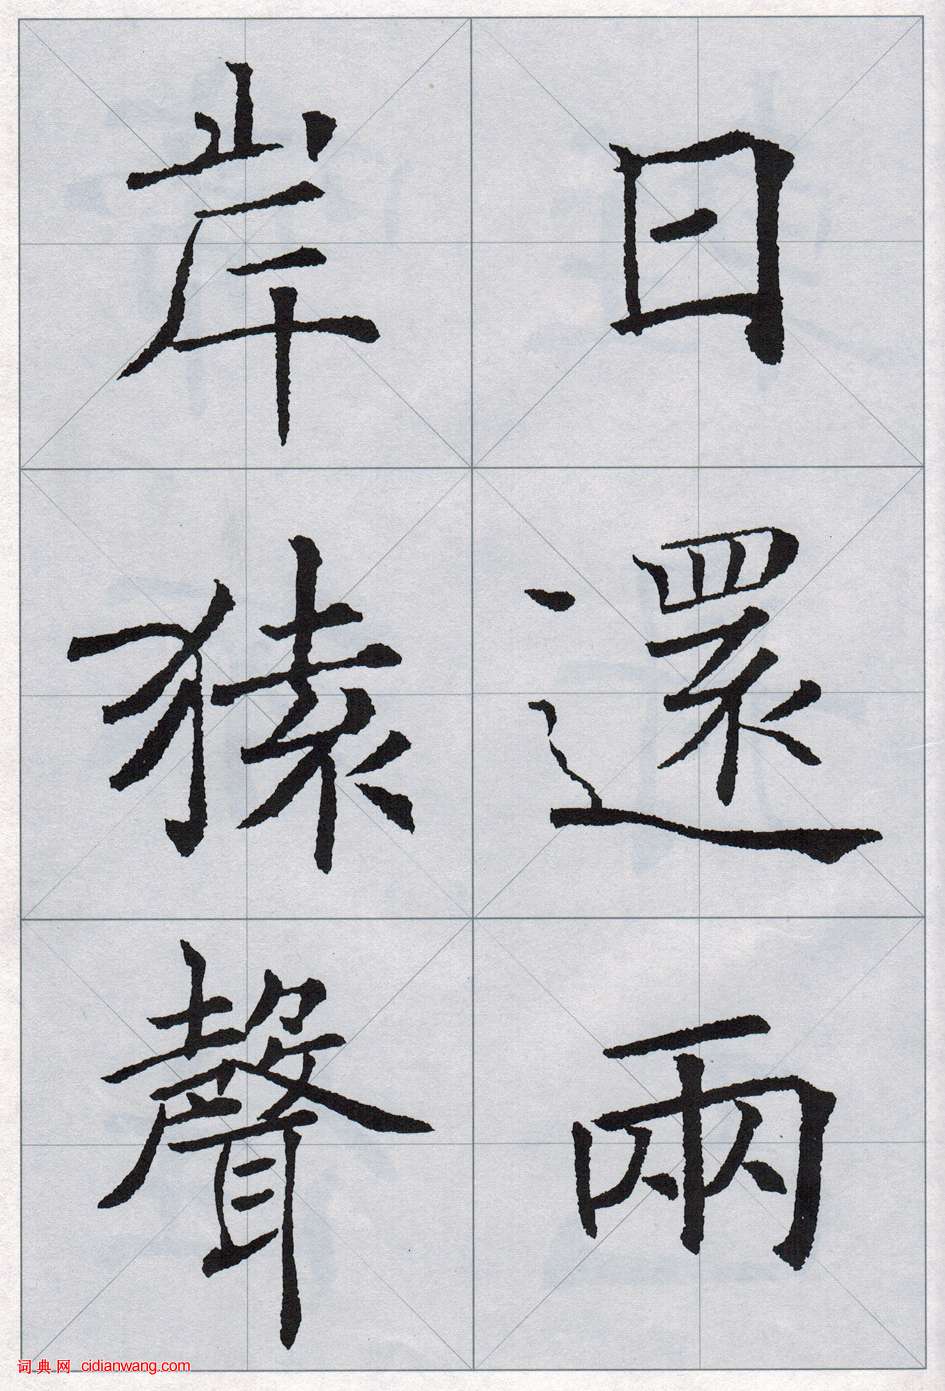 日還兩
岸猿聲
词典网 cidianwang.com